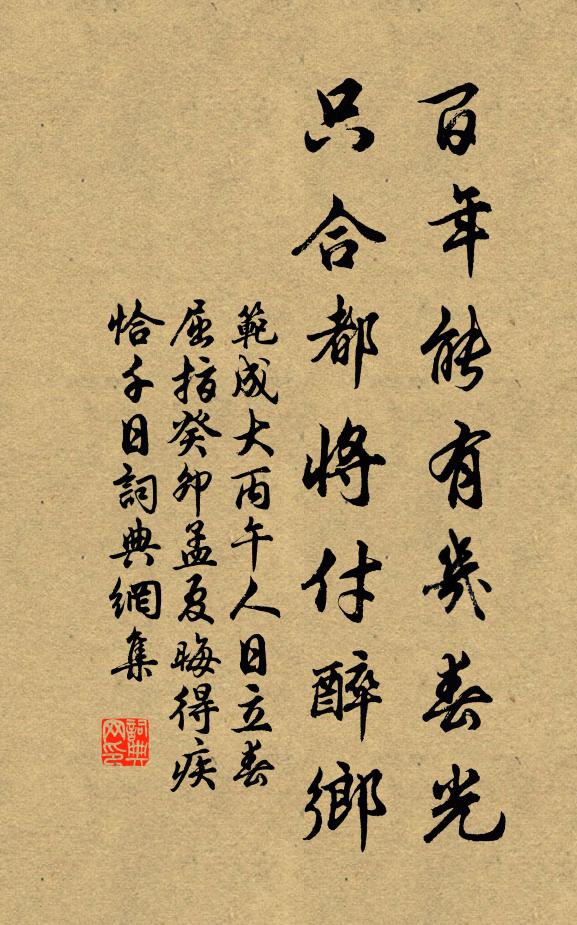 百年能有幾春光
只合都將付醉鄉
範成大丙午人日立春
屈指癸卯孟夏晦得疾
恰千日詞典網集
詞典網印